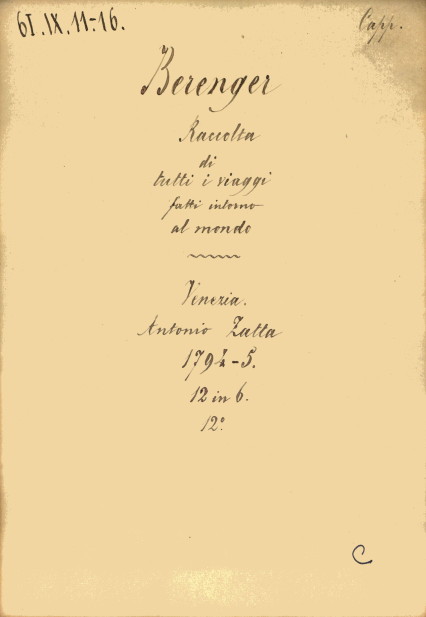 61.IX.11-16.
Capp.
Berenger
Raccolta
di
tutti i viaggi
fatti intorno
al mondo
Venezia.
Antonio Zatta
1794-5.
12 in 6.
12°
C